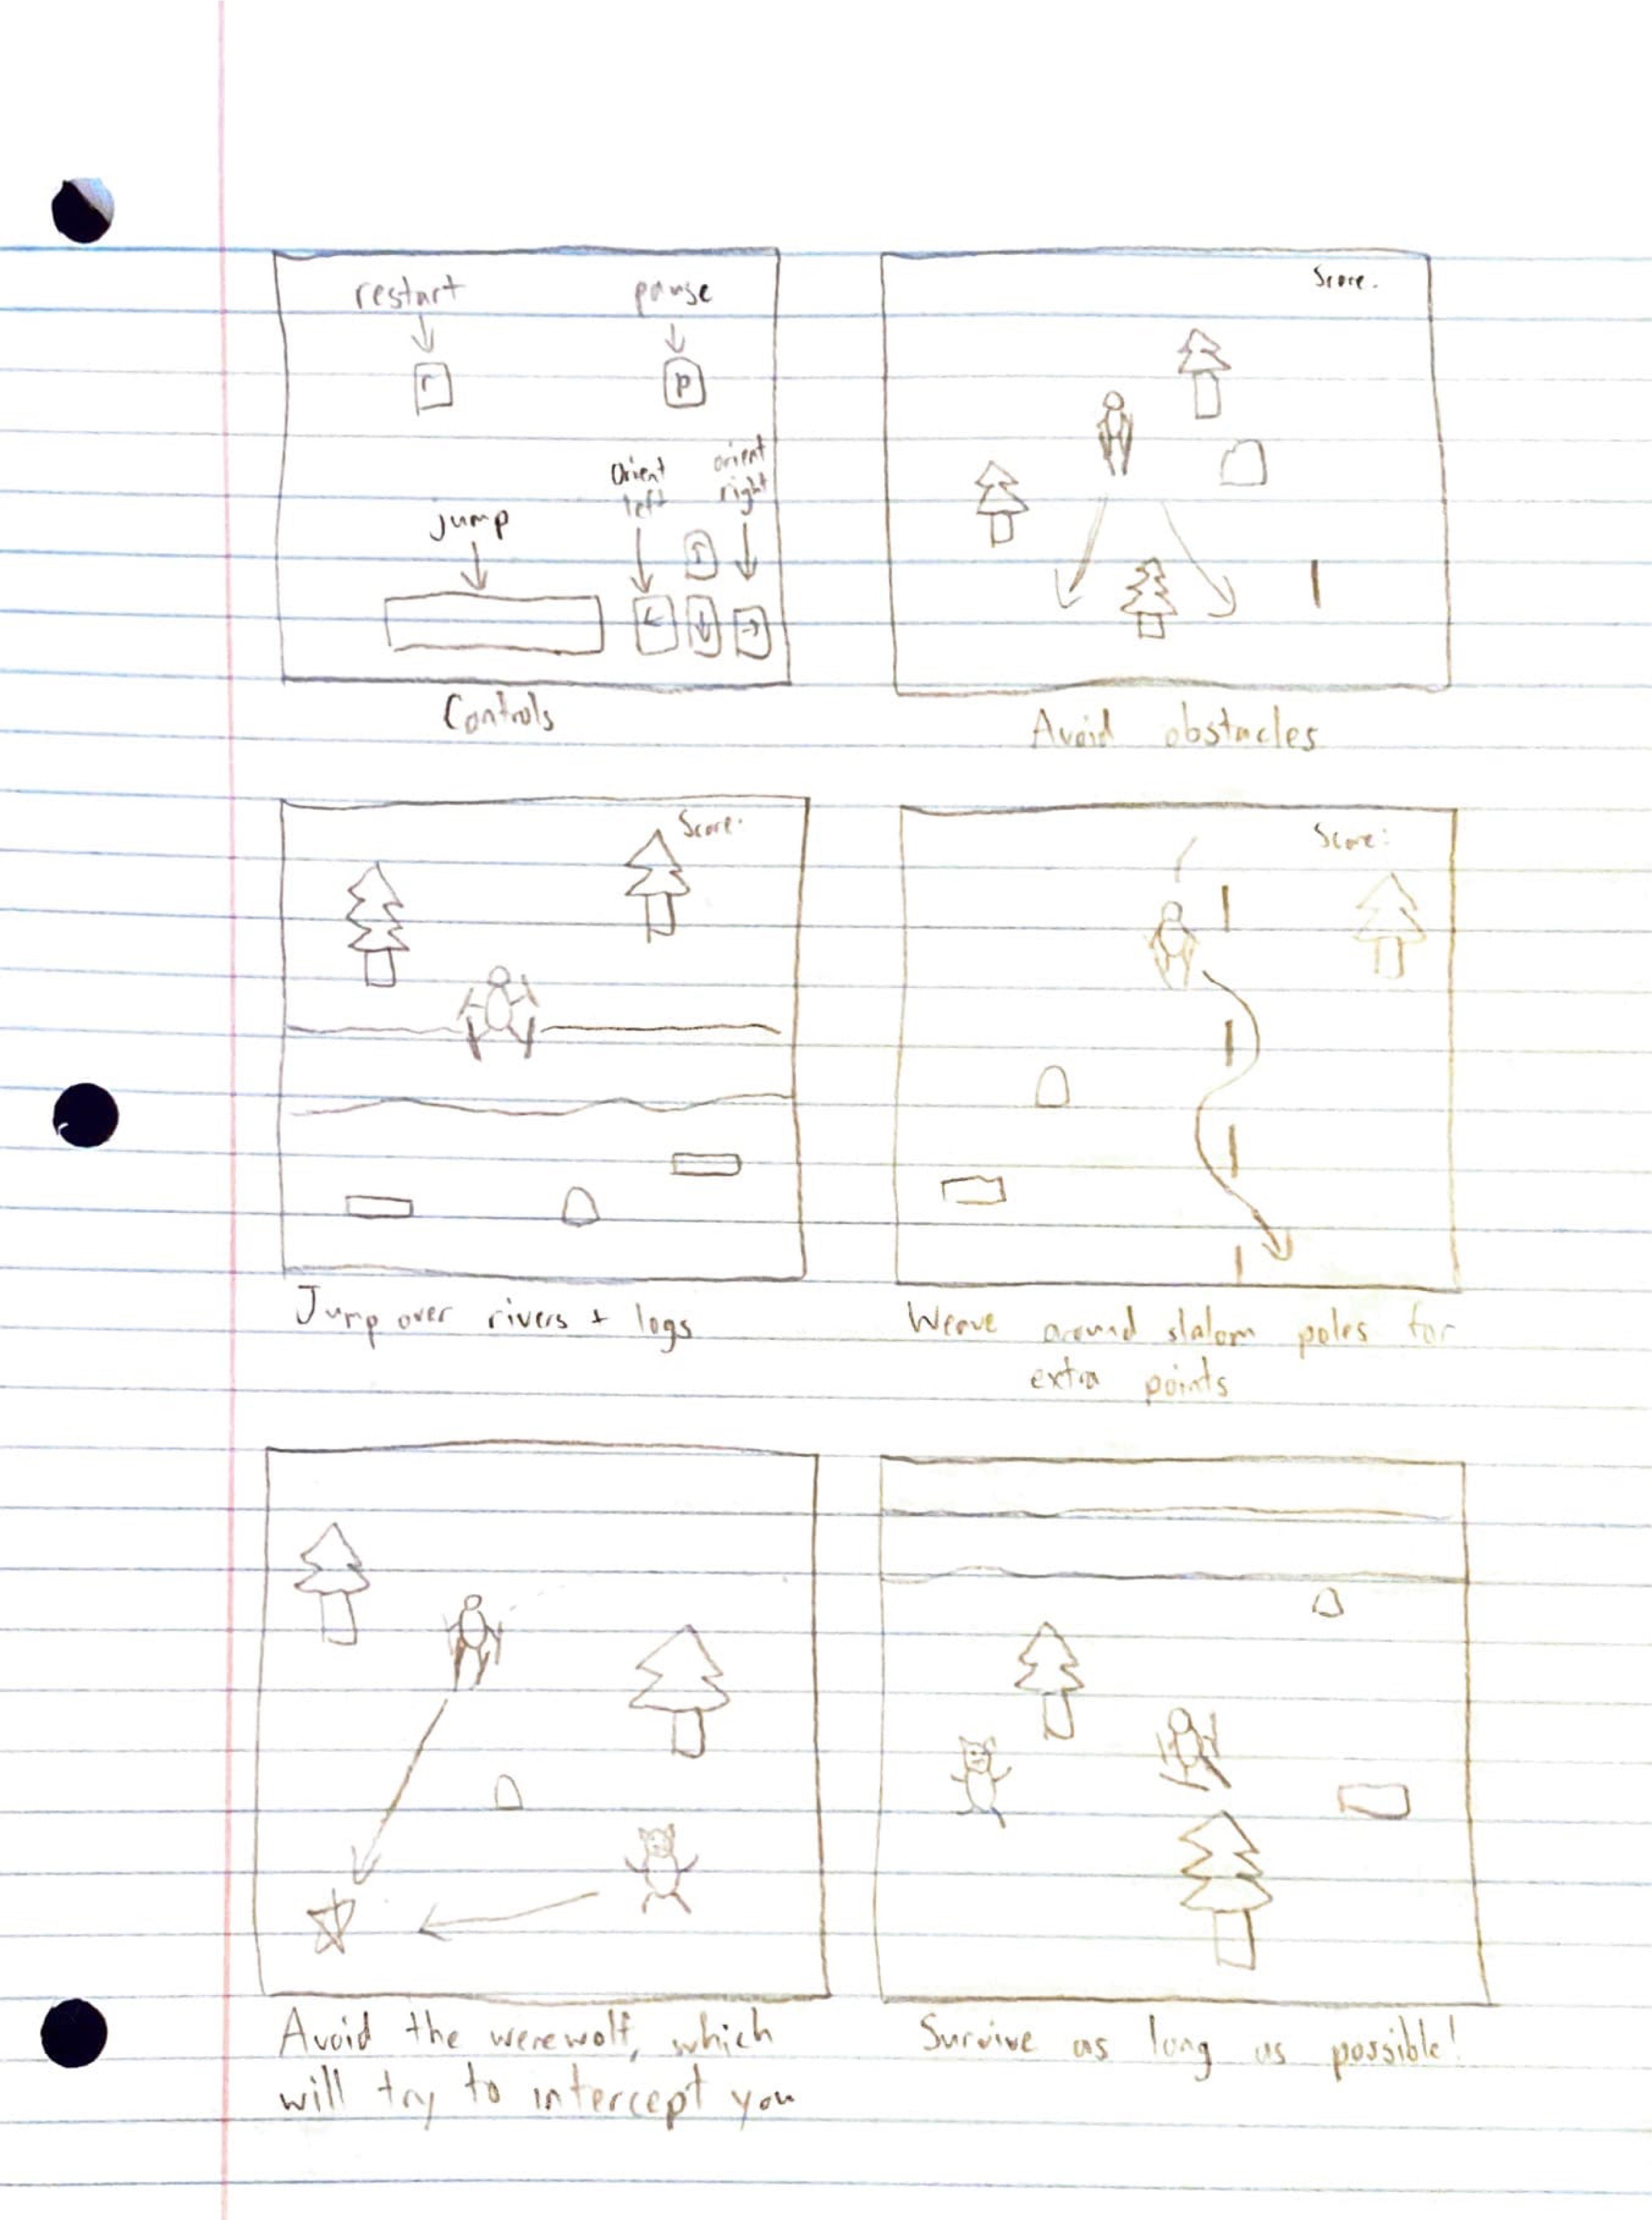 restart pause
r p
orient left orient right
jump
↑
← ↓ →
Controls
Score.
Avoid obstacles
Score:
Jump over rivers + logs
Score:
Weave around slalom poles for
extra points
Avoid the werewolf, which
will try to intercept you
Survive as long as possible!